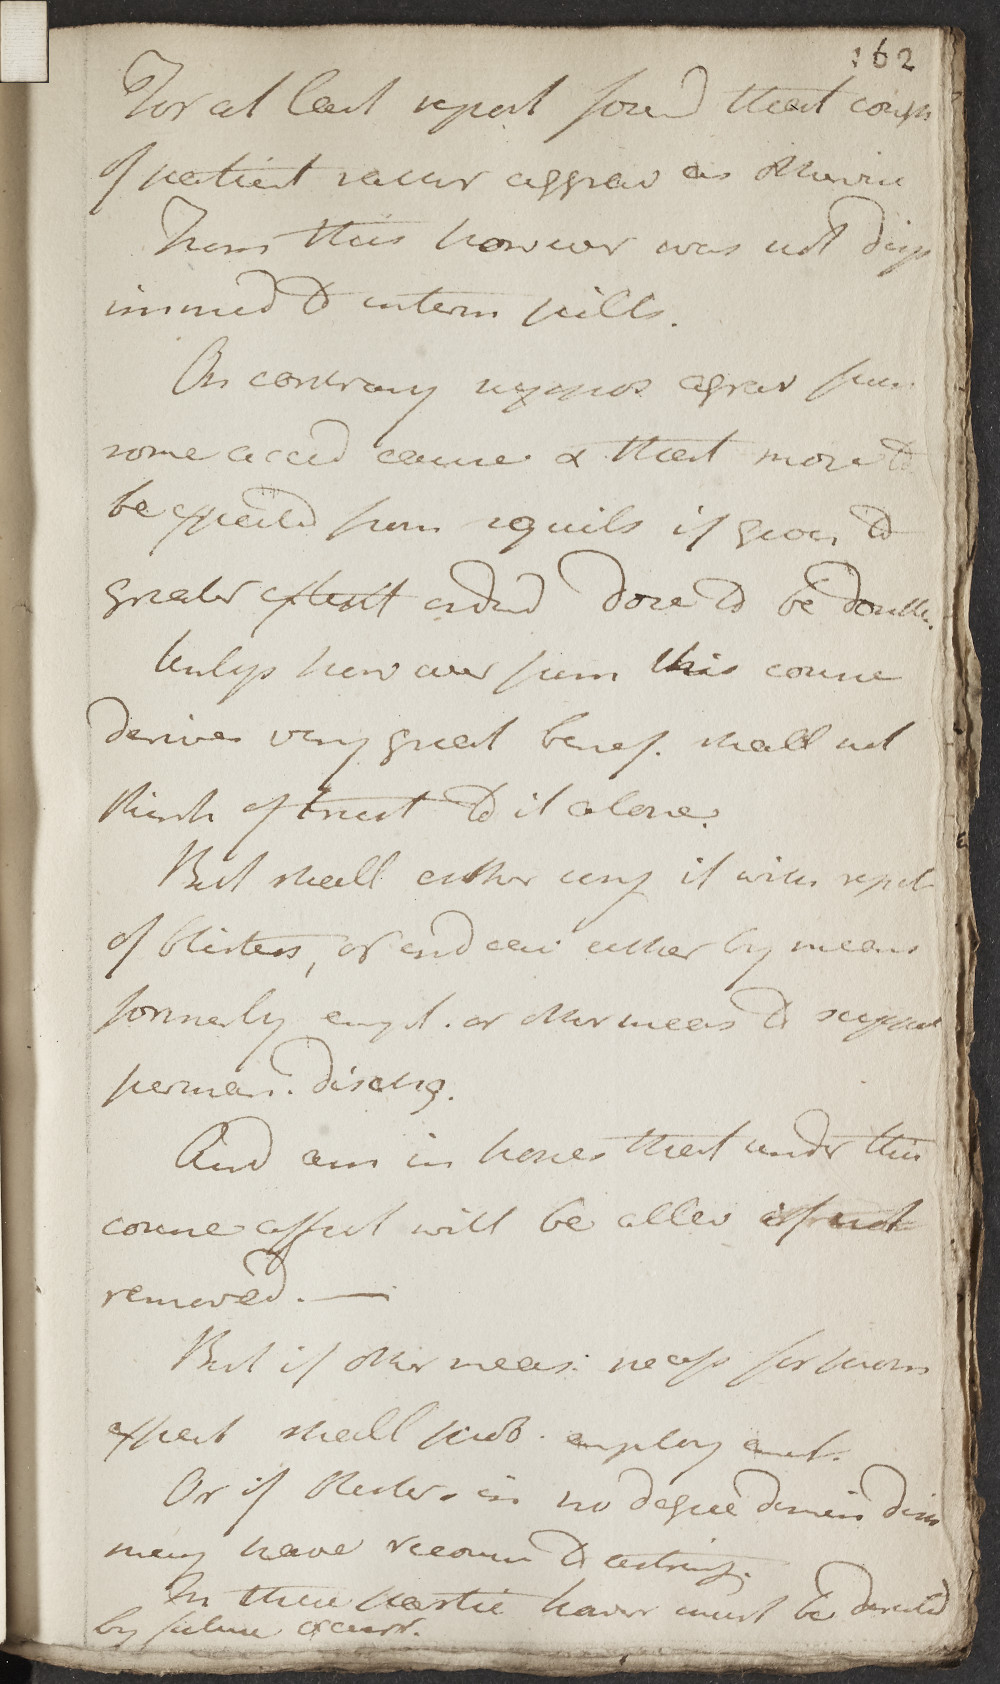 162
For at last report found that cough
of patient rather aggrav as otherwise
From this however was not disp
immed to interm pills.
On contrary suppos agrav from
some accid cause & that more to
be expected from squils if given to
greater extent ordred dose to be double.
Unless however from this course
derives very great benef. shall not
think of trust to it alone.
But shall either conj it with repet
of blisters, or endeav either by means
formerly empl. or other meas to support
perman. discharg.
And am in hopes that under this
course affect will be allev if not
removed. —
But if other meas: necess for prom
expect shall prob. employ emet.
Or if blisters in no degree dimin disch
may have recourse to astring.
In these partic howev must be directed
by future occurr.